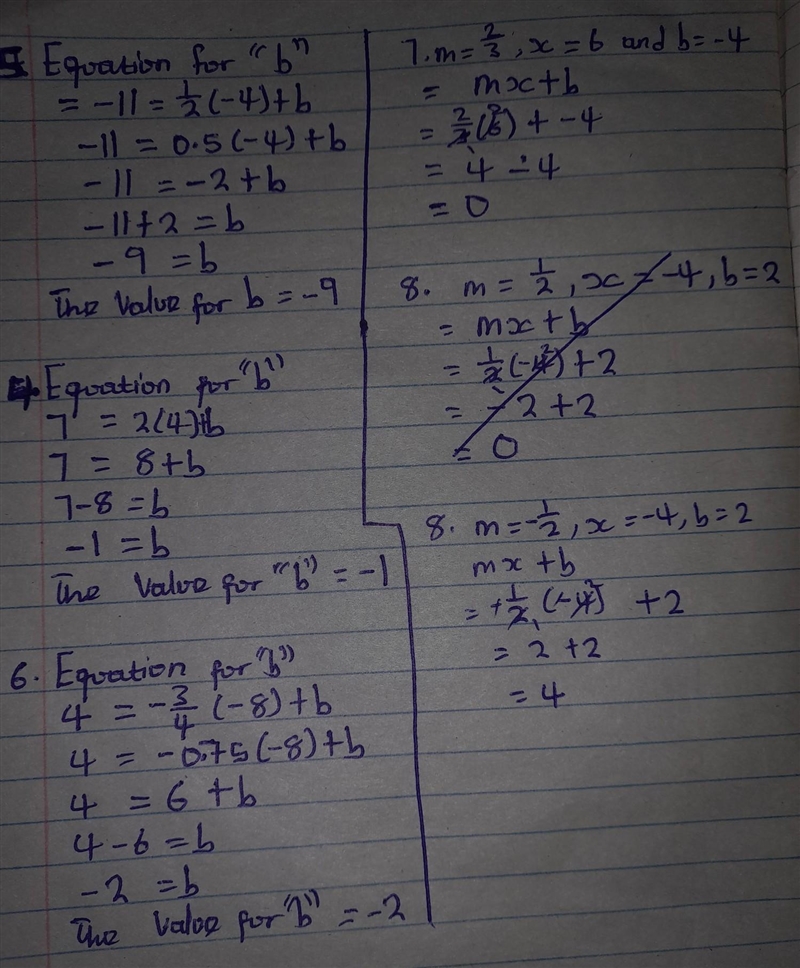 5 Equation for "b"
= -11 = 1/2 (-4) + b
-11 = 0.5 (-4) + b
-11 = -2 + b
-11 + 2 = b
-9 = b
The Value for b = -9
4. Equation for "b"
7 = 2(4)+b
7 = 8 + b
7-8 = b
-1 = b
The Value for "b" = -1
6. Equation for "b"
4 = -3/4 (-8) + b
4 = -0.75 (-8) + b
4 = 6 + b
4 - 6 = b
-2 = b
The Value for "b" = -2
7. m = 2/3, x = 6 and b = -4
= mx + b
= 2/3 (6) 2 + -4
= 4 - 4
= 0
8. m = 1/2, x = -4, b = 2
= mx + b
= 1/2 (-4) 2 + 2
= -2 + 2
= 0
8. m = -1/2, x = -4, b = 2
mx + b
= +1/2 (-4) 2 + 2
= 2 + 2
= 4